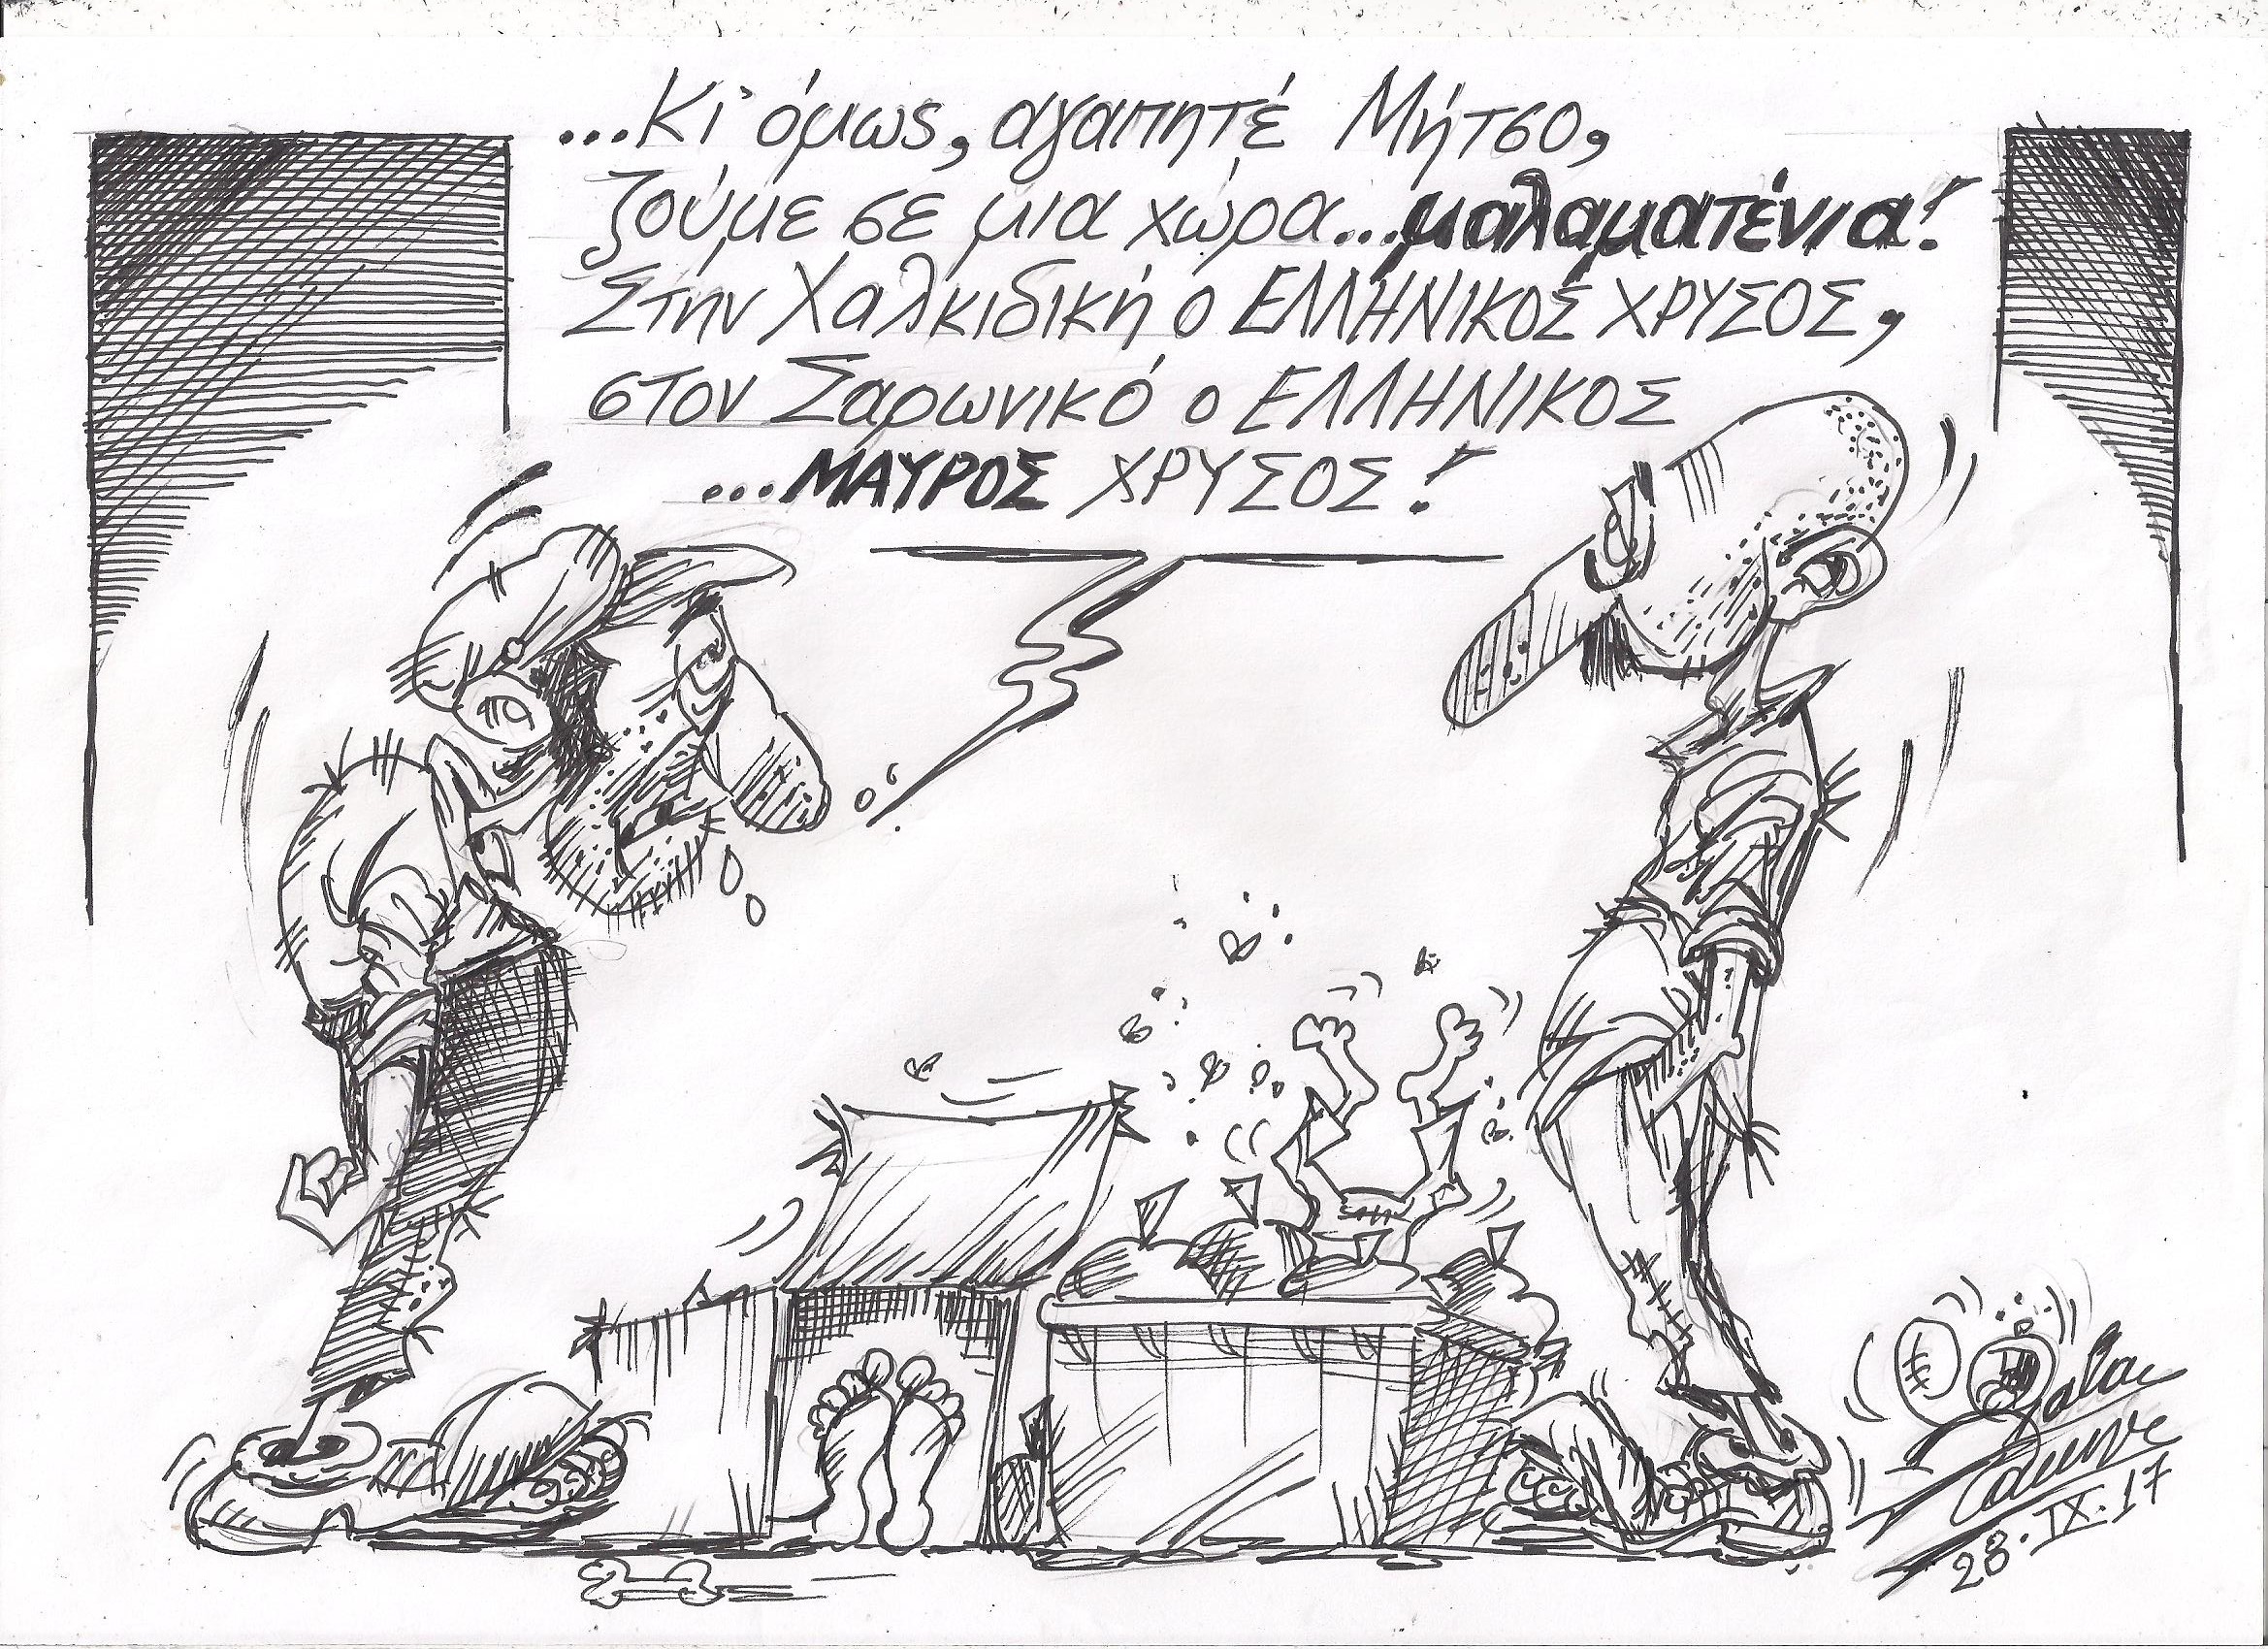 ...Κι όμως, αγαπητέ Μήτσο,
ζούμε σε μια χώρα...μαλαματένια!
Στην Χαλκιδική ο ΕΛΛΗΝΙΚΟΣ ΧΡΥΣΟΣ,
στον Σαρωνικό ο ΕΛΛΗΝΙΚΟΣ
...ΜΑΥΡΟΣ ΧΡΥΣΟΣ!
28.IX.17